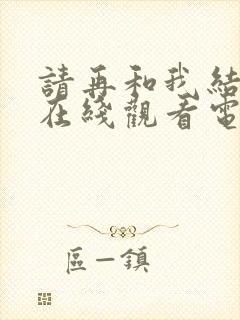 請再和我結
在綫觀看電
區一鎮